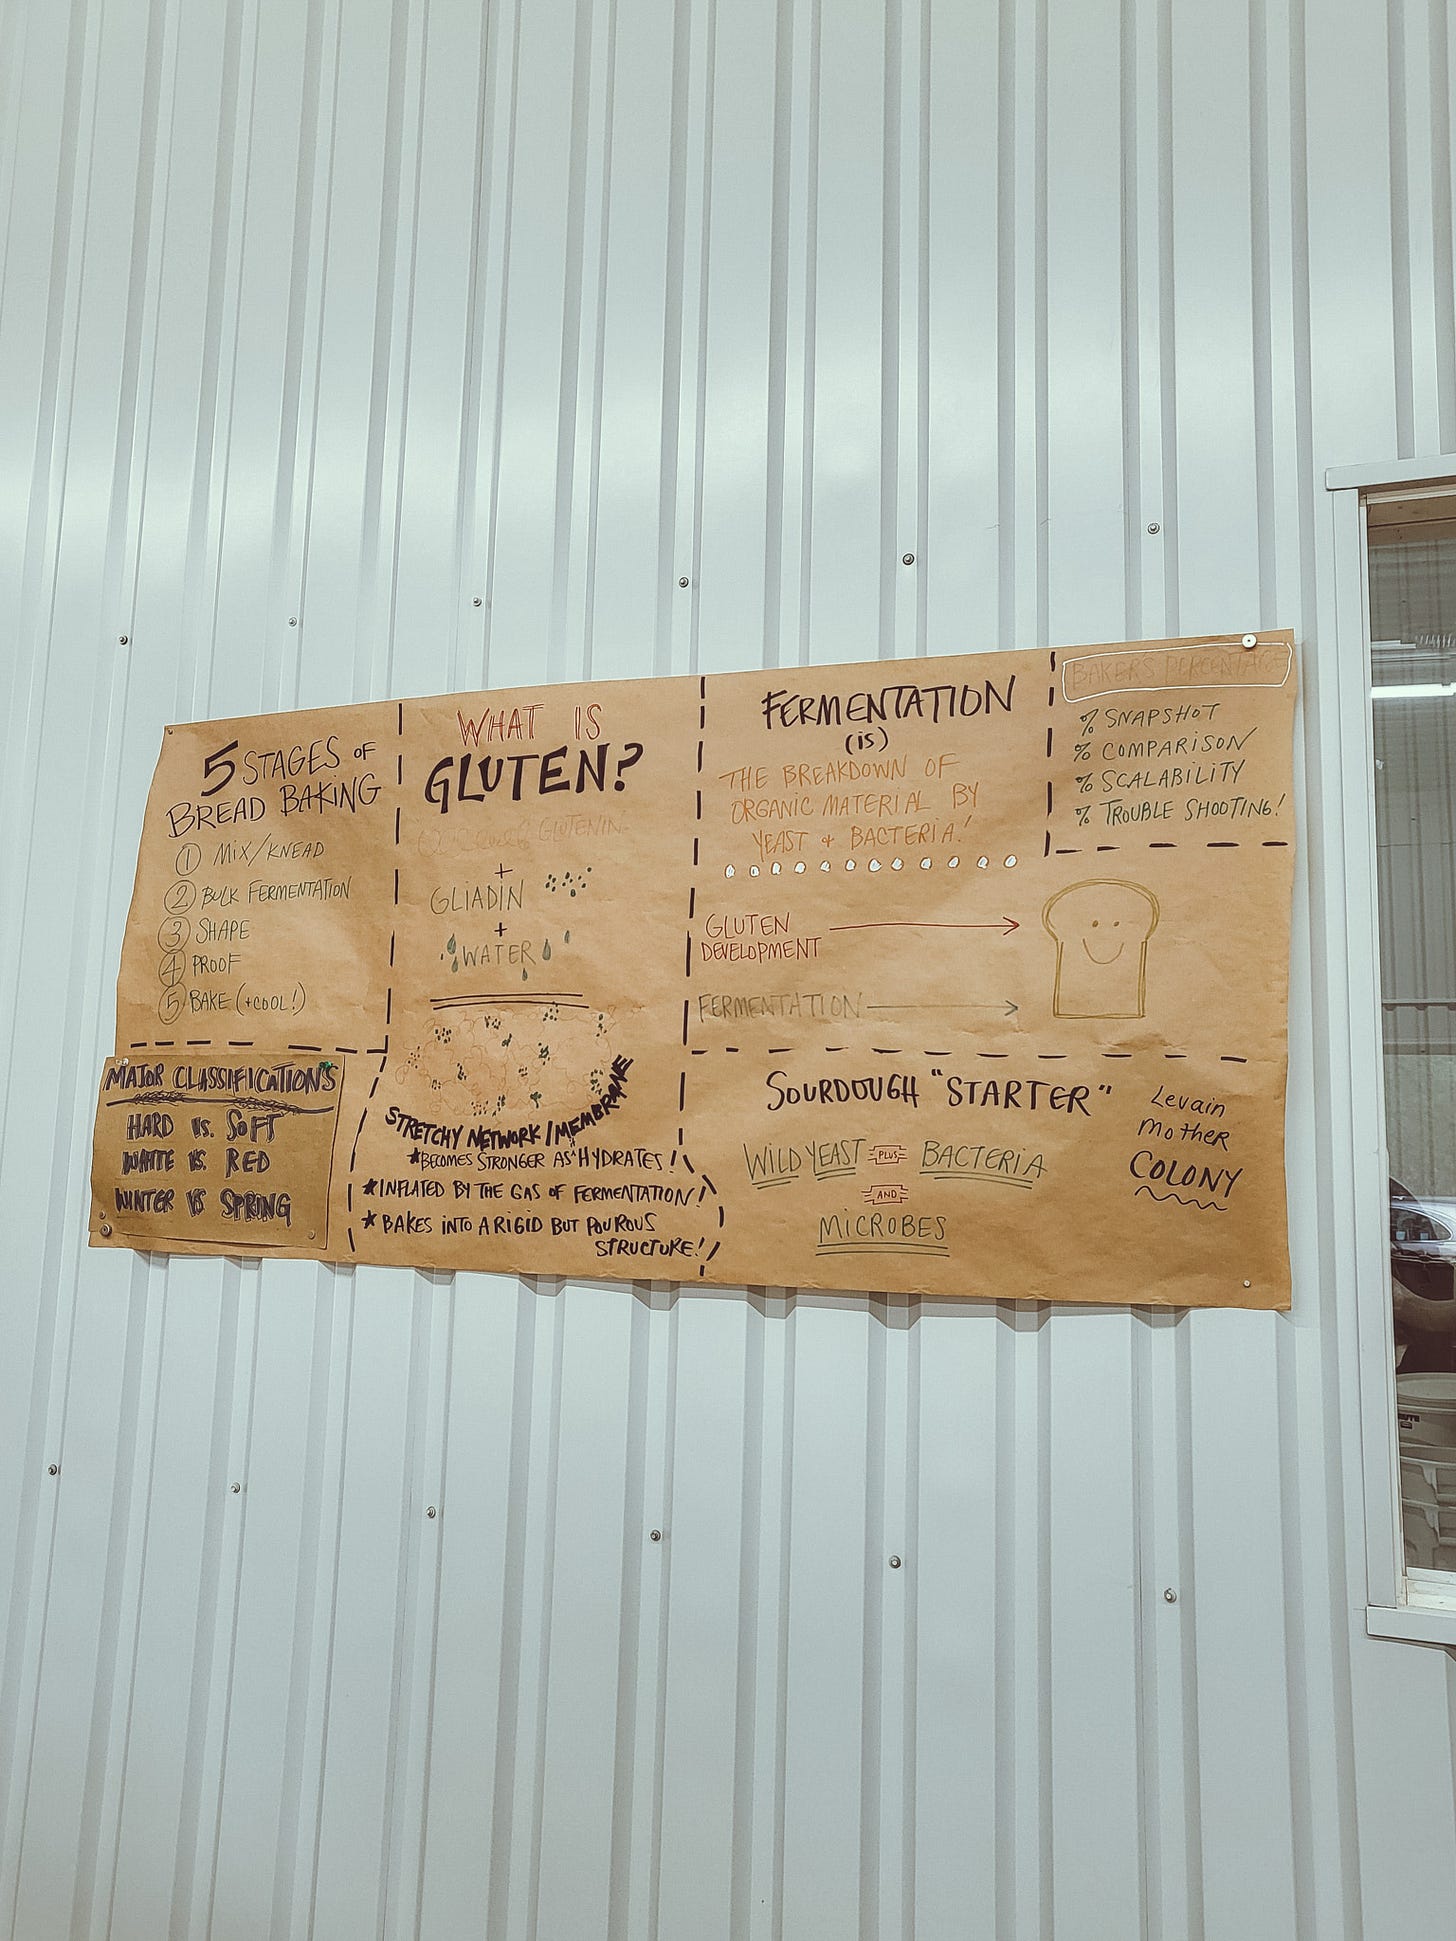 5 STAGES OF
BREAD BAKING
1 MIX/KNEAD
2 BULK FERMENTATION
3 SHAPE
4 PROOF
5 BAKE (+COOL!)
MAJOR CLASSIFICATIONS
HARD vs. SOFT
WHITE VS. RED
WINTER VS SPRING
WHAT IS
GLUTEN?
GLUTENIN
+
GLIADIN
+
WATER
STRETCHY NETWORK/MEMBRANE
*BECOMES STRONGER AS HYDRATES!
*INFLATED BY THE GAS OF FERMENTATION!
*BAKES INTO A RIGID BUT POUROUS
STRUCTURE!
FERMENTATION
(is)
THE BREAKDOWN OF
ORGANIC MATERIAL BY
YEAST + BACTERIA!
GLUTEN
DEVELOPMENT
FERMENTATION
BAKERS PERCENTAGE
% SNAPSHOT
% COMPARISON
% SCALABILITY
% TROUBLE SHOOTING!
SOURDOUGH "STARTER"
WILD YEAST PLUS BACTERIA
AND
MICROBES
Levain
Mother
COLONY